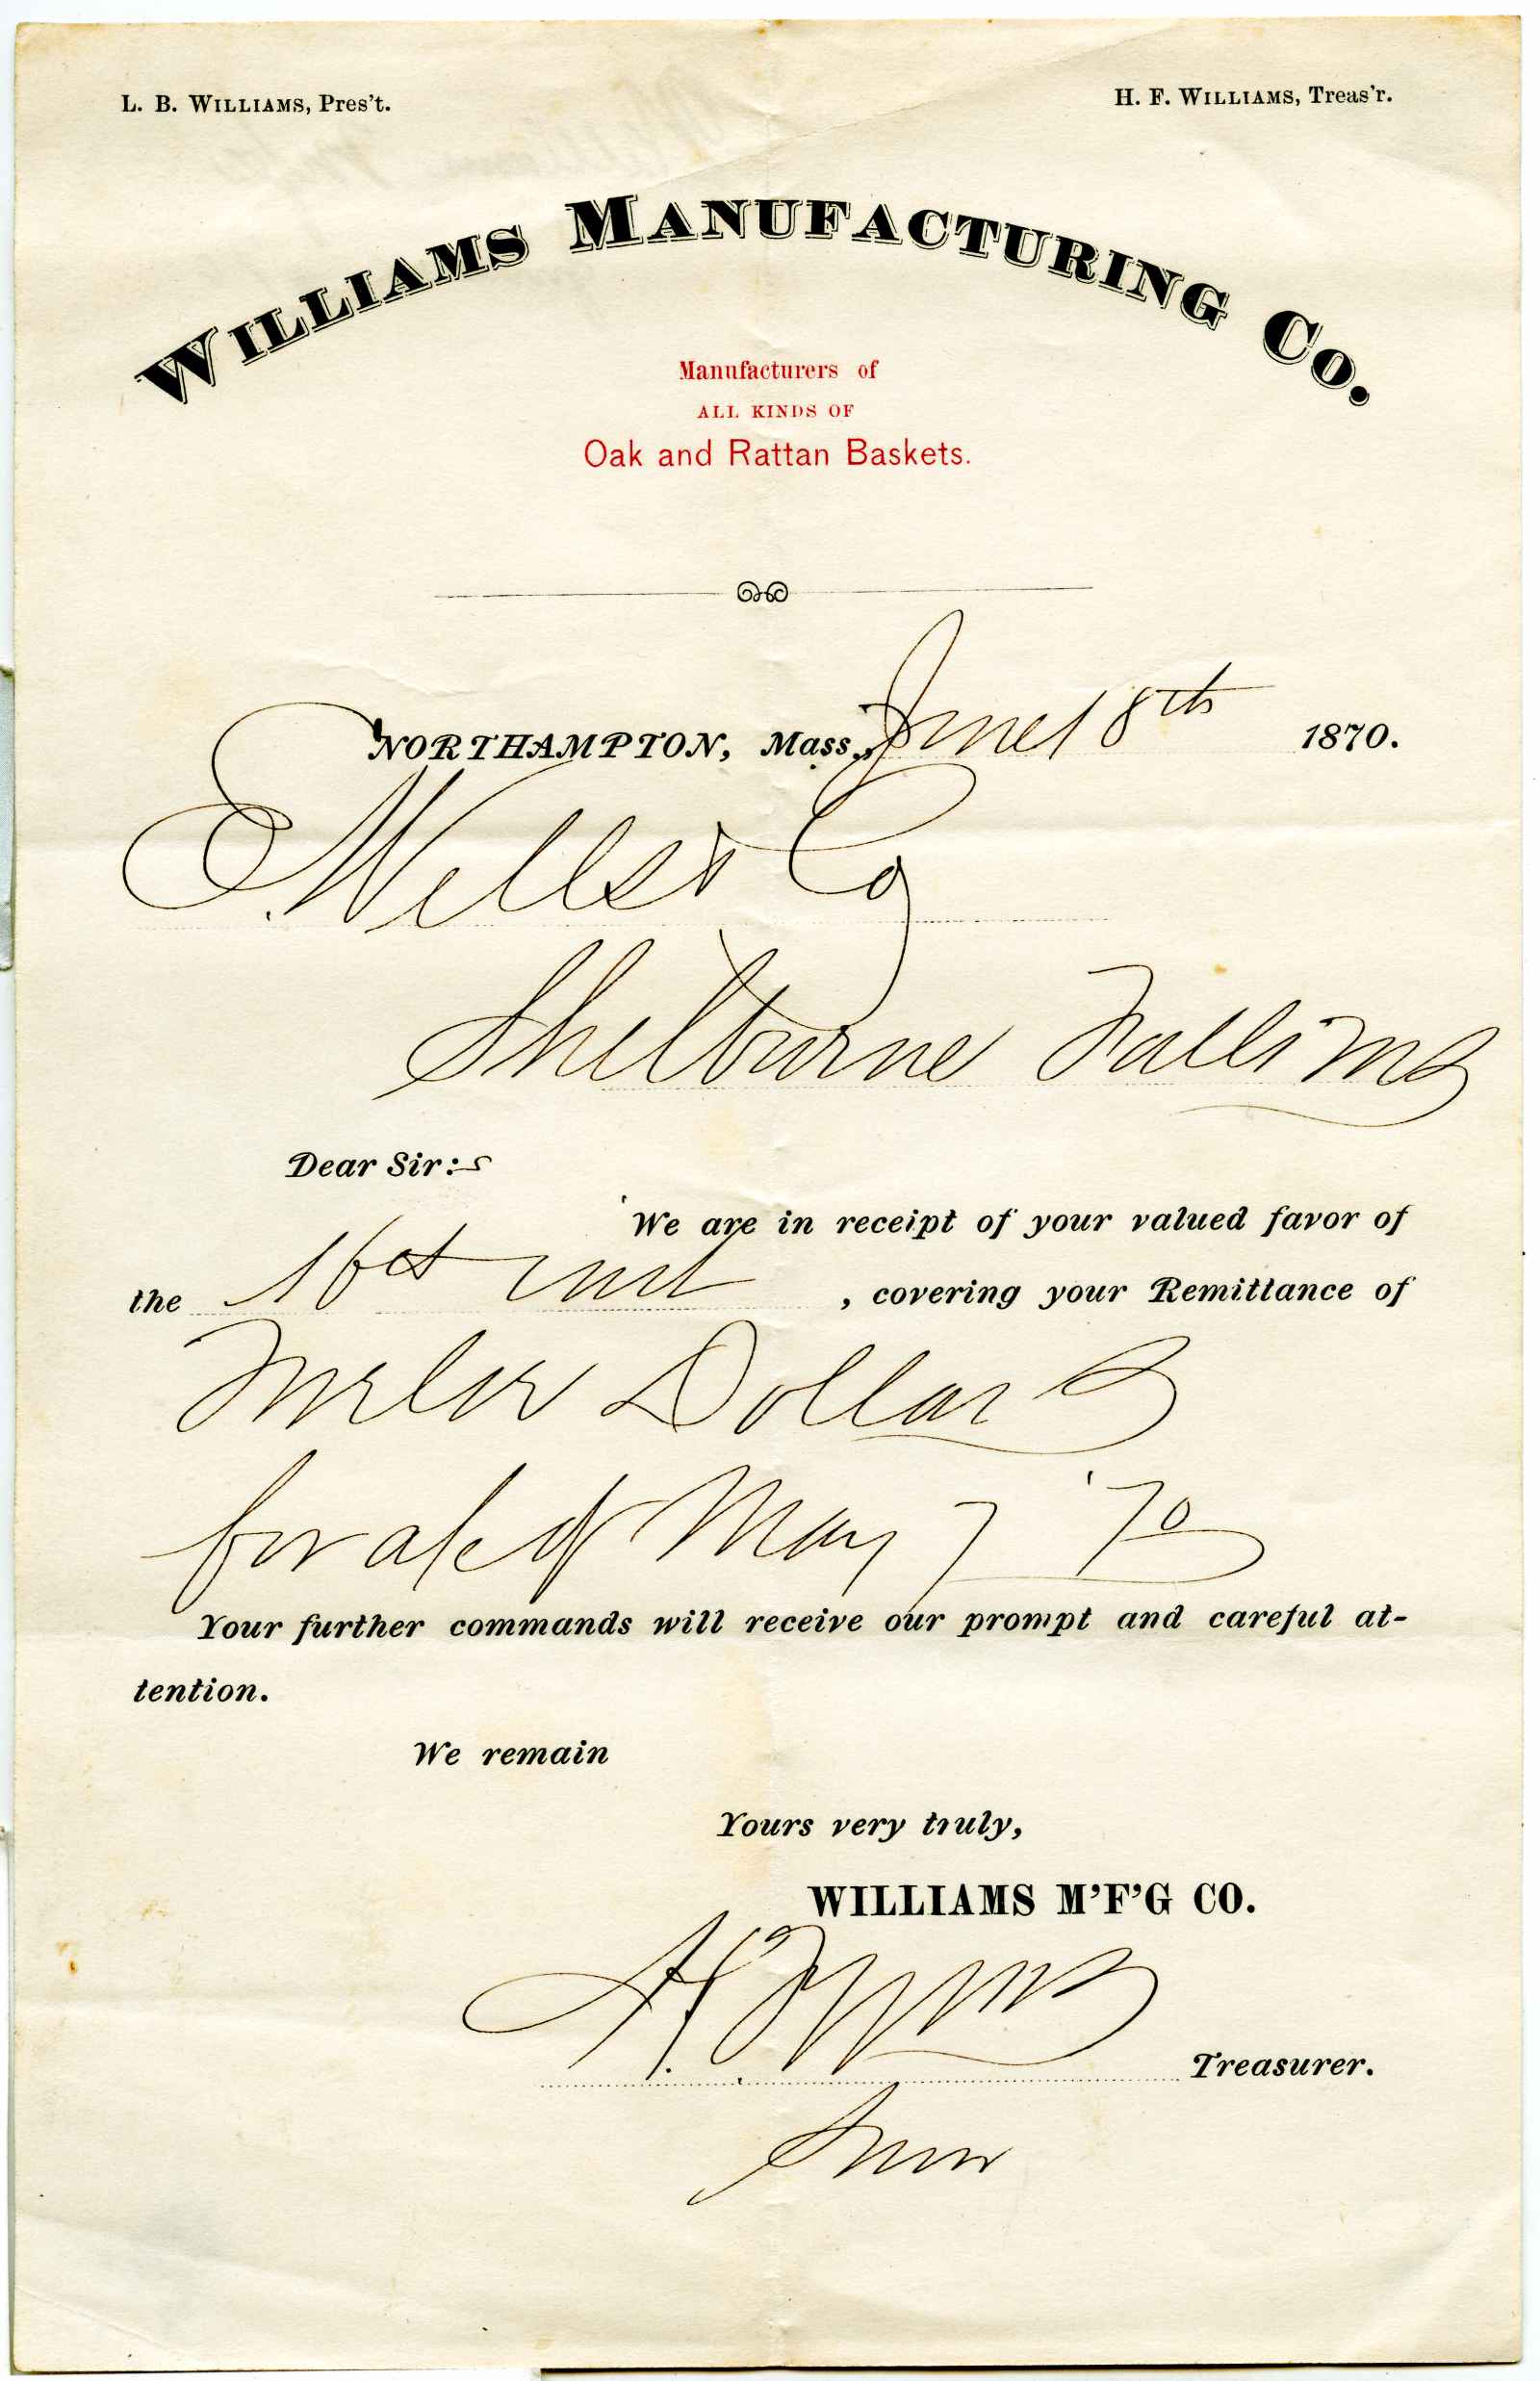 L. B. WILLIAMS, Pres't.
H. F. WILLIAMS, Treas'r.
WILLIAMS MANUFACTURING CO.
Manufacturers of
ALL KINDS OF
Oak and Rattan Baskets.
NORTHAMPTON, Mass., June 18th 1870.
E. Wells & Co
Shelburne Falls Ms
Dear Sir:
We are in receipt of your valued favor of
the 16th inst, covering your Remittance of
Twelve Dollars
for a/c of May 7 '70
Your further commands will receive our prompt and careful at-
tention.
We remain
Yours very truly,
WILLIAMS M'F'G CO.
H. F. Williams
Treasurer.